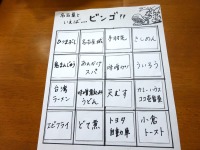 名古屋と
いえば… ビンゴ!!
ひつまぶし 名古屋城 手羽先 きしめん
あんかけ
スパ
味噌カツ ういろう
台湾
ラーメン
味噌煮込み
うどん
天むす
エビフライ どて煮
トヨタ
自動車
小倉
トースト